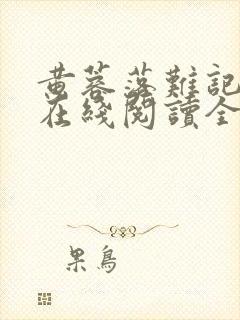 黄蓉落難記
在綫閱讀全
果鳥